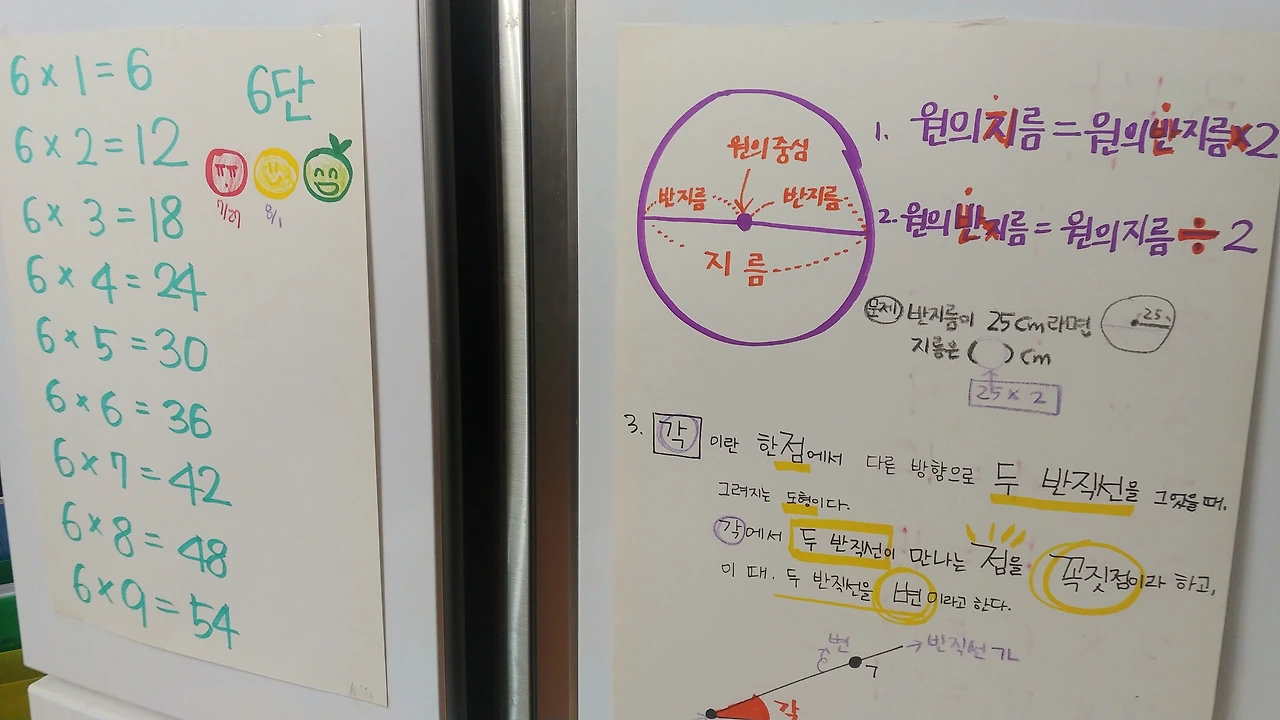 6단
6 × 1 = 6
6 × 2 = 12
6 × 3 = 18
6 × 4 = 24
6 × 5 = 30
6 × 6 = 36
6 × 7 = 42
6 × 8 = 48
6 × 9 = 54
7/27
8/1
원의 중심
반지름
반지름
지름
1. 원의 지름 = 원의 반지름 × 2
2. 원의 반지름 = 원의 지름 ÷ 2
문제 반지름이 25cm라면
지름은 ( ) cm
25 × 2
25
3. 각 이란 한 점에서 다른 방향으로 두 반직선을 그었을 때,
그려지는 도형이다.
각에서 두 반직선이 만나는 점을 꼭짓점이라 하고,
이 때, 두 반직선을 변이라고 한다.
변
반직선 가
ㄱ
각